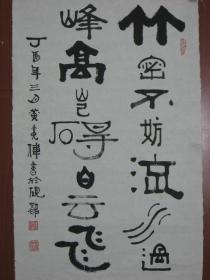 竹密不妨流水過
峰高岂碍白云飞
丁酉年三月黄書於硯都